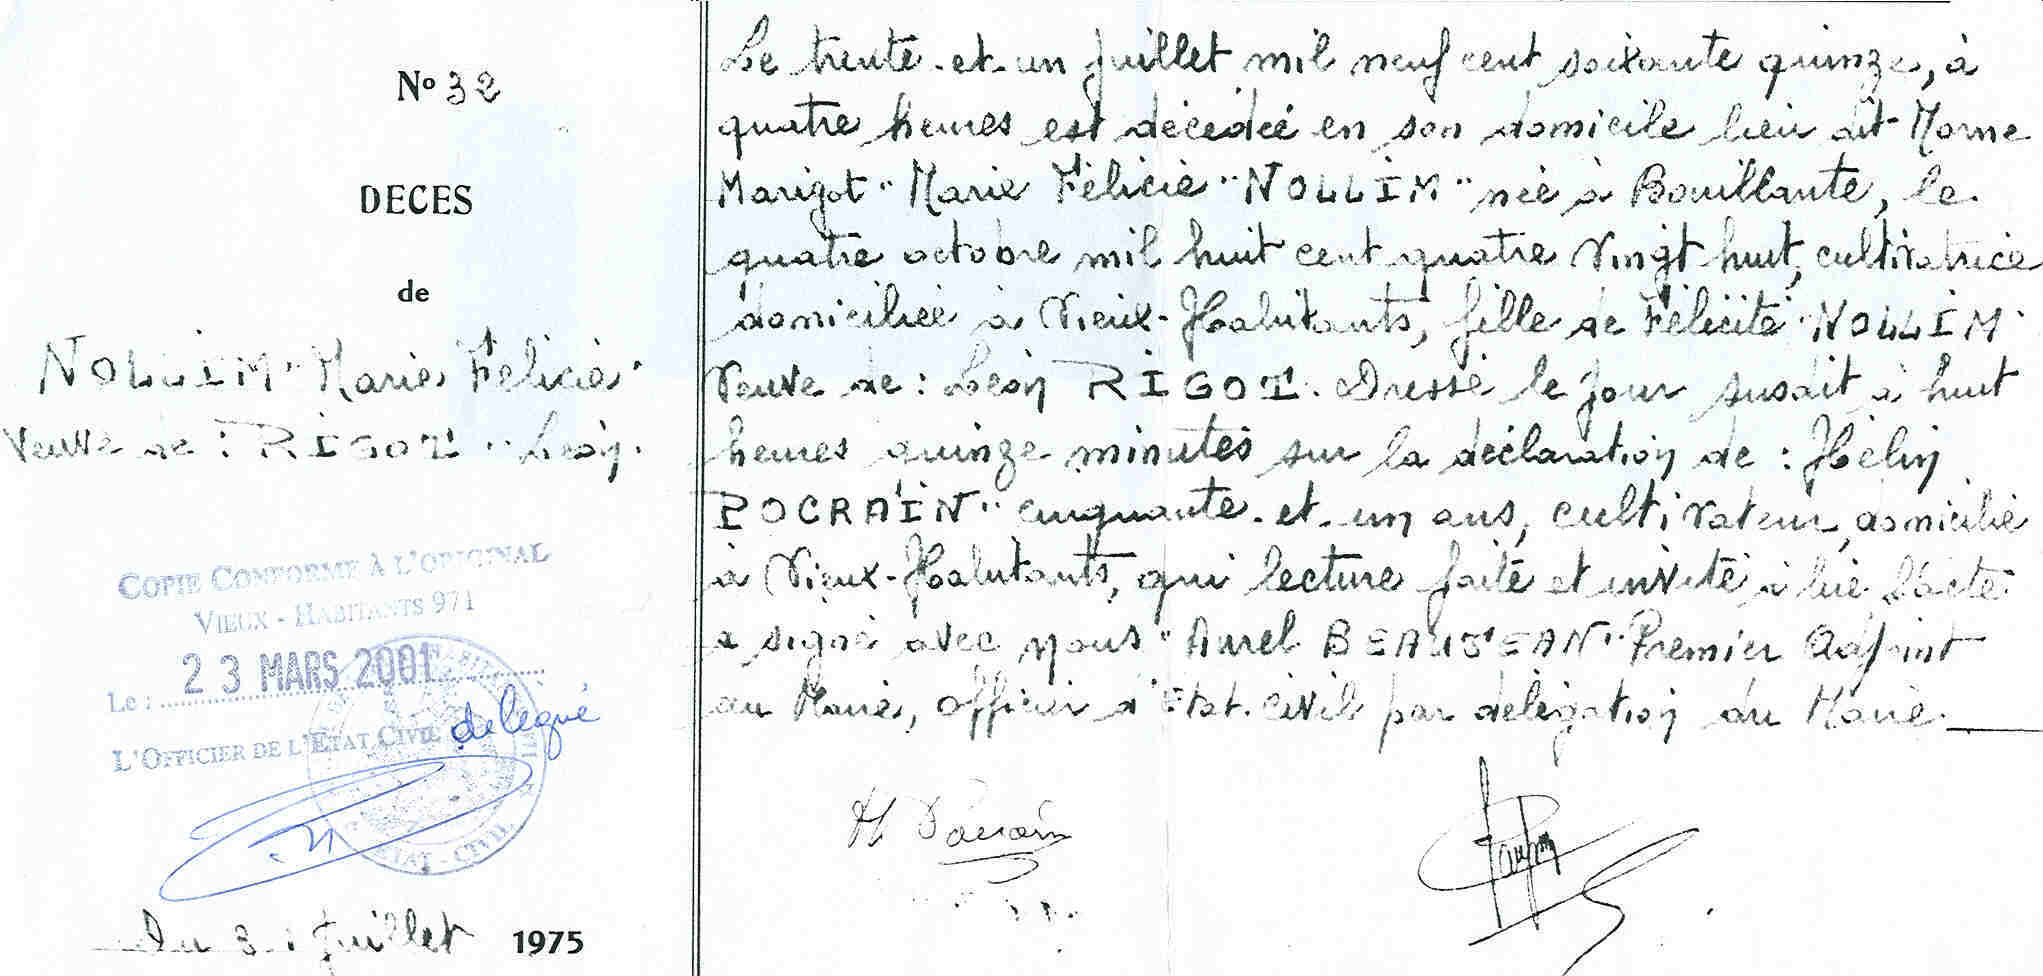 No 32
DECES
de
NOLLIM " Marie Félicie
Veuve de : RIGOT " Léon.
COPIE CONFORME À L'ORIGINAL
VIEUX - HABITANTS 971
Le : 23 MARS 2001
L'OFFICIER DE L'ETAT CIVIL délégué
ETAT - CIVIL
Du 31 Juillet 1975
Le trente-et-un juillet mil neuf cent soixante quinze, à
quatre heures est décédée en son domicile lieu dit Morne
Marigot " Marie Félicie " NOLLIM " née à Bouillante, le
quatre octobre mil huit cent quatre vingt huit, cultivatrice
domiciliée à Vieux-Habitants, fille de Félicité NOLLIM
Veuve de : Léon RIGOT. Dressé le jour susdit à huit
heures quinze minutes sur la déclaration de : Hélin
POCRAIN " cinquante-et-un ans, cultivateur, domicilié
à Vieux-Habitants, qui lecture faite et invité à lire l'acte
a signé avec nous " Aurel BEAUJEAN " Premier Adjoint
au Maire, officier d'Etat-civil par délégation du Maire.
H Pocrain